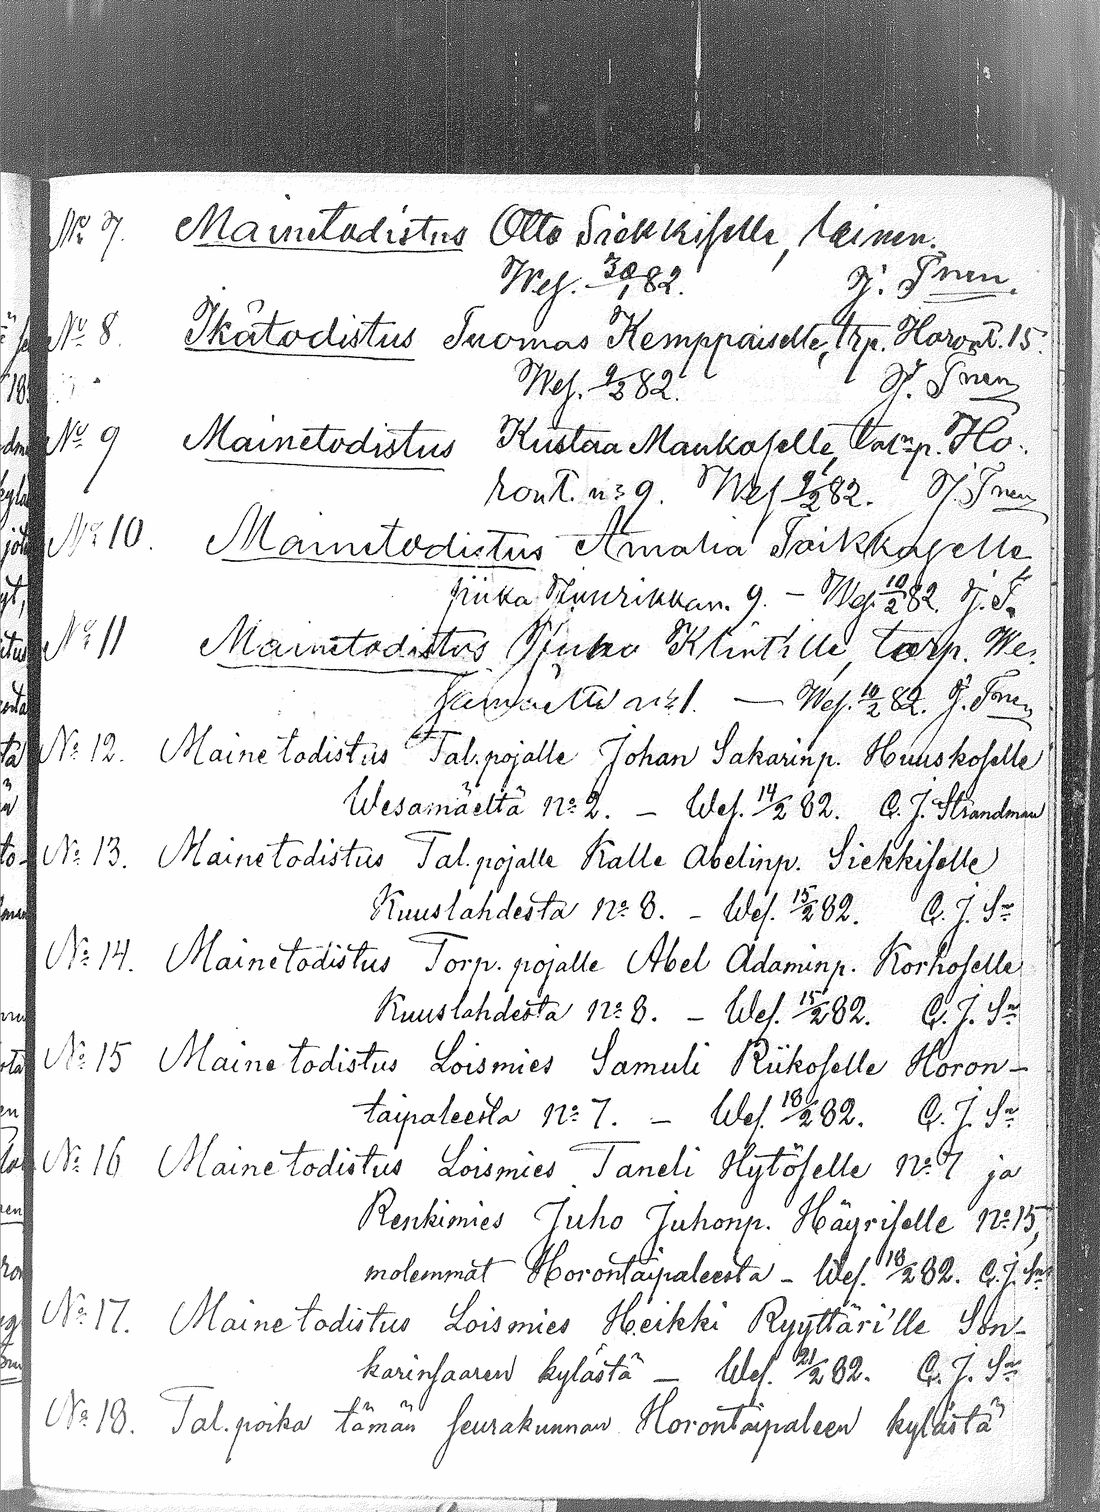 No 7. Mainetodistus Otto Siekkiselle, loinen.
Wes. 30/1 82. J. Tnen.
No 8. Ikätodistus Tuomas Kemppaiselle, trp. Horont. 15.
Wes. 9/2 82. J. Tnen
No 9 Mainetodistus Kustaa Maukoselle, Ho-
ront. no 9. Wes 9/2 82. J. Tnen
No 10. Mainetodistus Amalia Toikkaselle
piika 9. – Wes. 10/2 82. J. T.
No 11 Mainetodistus Juho Klint'ille, torp. We-
samäeltä no 1. — Wes. 10/2 82. J. Tnen
No 12. Mainetodistus Tal. pojalle Johan Sakarinp. Huuskoselle
Wesamäeltä no 2. – Wes. 14/2 82. C. J. Strandman
No 13. Mainetodistus Tal. pojalle Kalle Abelinp. Siekkiselle
Kuuslahdesta no 8. – Wes. 15/2 82. C. J. Sn
No 14. Mainetodistus Torp. pojalle Abel Adaminp. Korhoselle
Kuuslahdesta no 8. – Wes. 15/2 82. C. J. Sn
No 15 Mainetodistus Loismies Samuli Riikoselle Horon-
taipaleesta no 7. – Wes. 18/2 82. C. J. Sn
No 16 Mainetodistus Loismies Taneli Hytöselle no 7 ja
Renkimies Juho Juhonp. Häyriselle no 15,
molemmat Horontaipaleesta – Wes. 18/2 82. C. J. Sn
No 17. Mainetodistus Loismies Heikki Ryyttäri'lle Son-
karinsaaren kylästä – Wes. 21/2 82. C. J. Sn
No 18. Tal. poika tämän seurakunnan Horontaipaleen kylästä